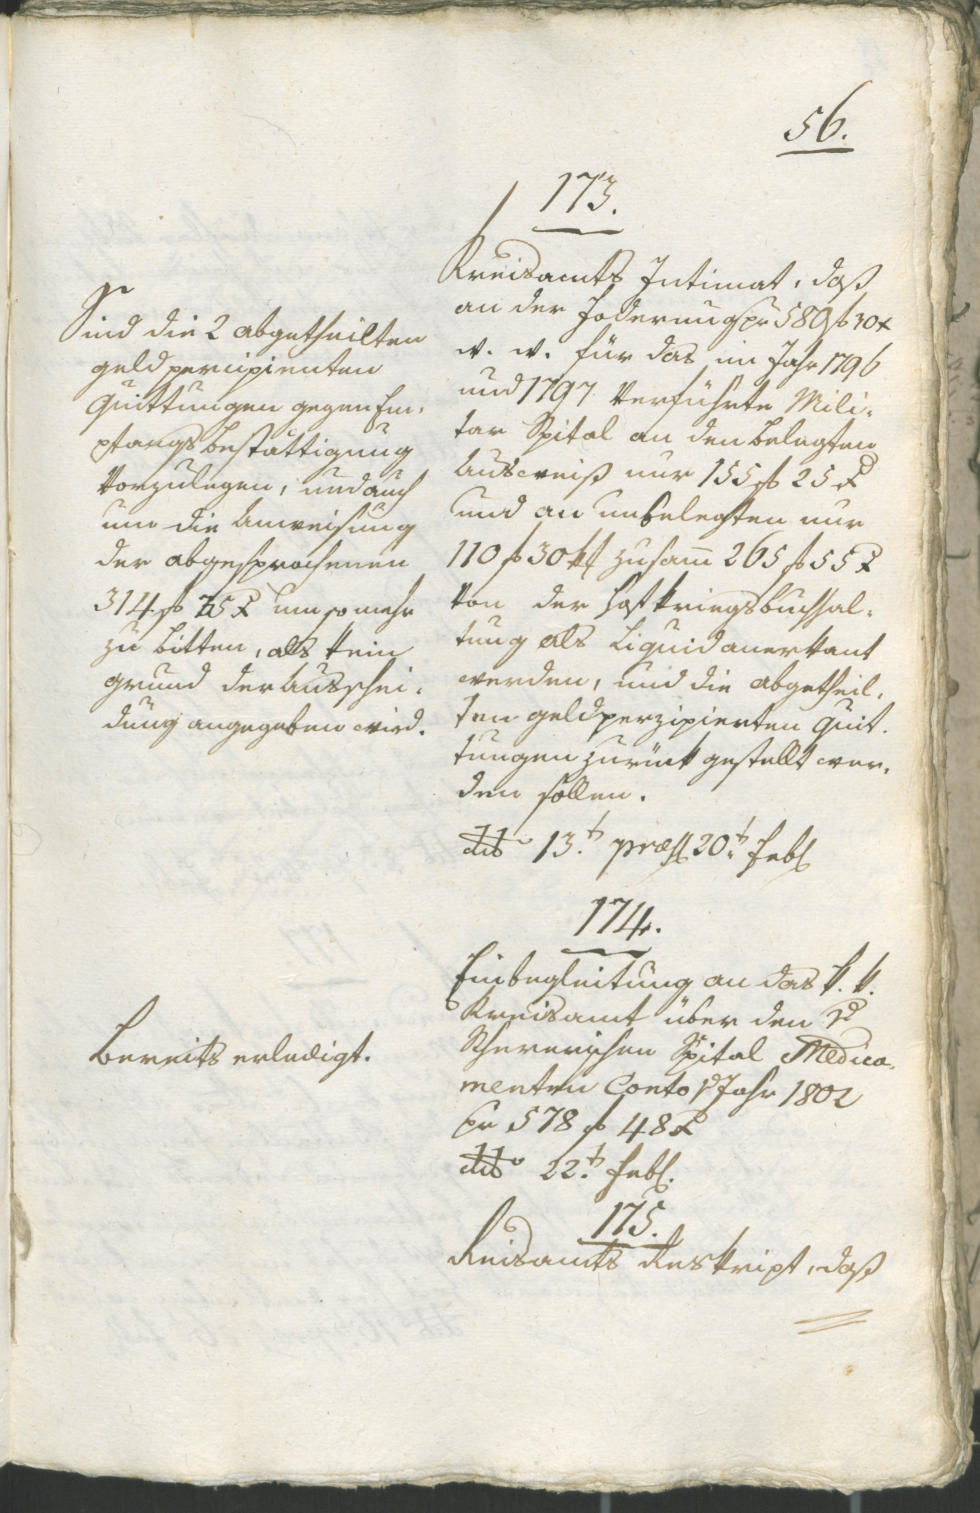 56.
173.
Kreisamts Intimat, daß
an der Foderung pr 580 f 30 x
w. w. für das im Jahr 1796
und 1797 verführte Mili-
tar Spital an den belegten
Ausweiß nur 155 f 25 x
und an unbelegten nur
110 f 30 x zusam̄ 265 f 55 x
von der Hofkriegsbuchhal-
tung als Liquid anerkant
werden, und die abgetheil-
ten geldperzipierten Quit-
tungen zurük gestellt wer-
den sollen.
ddto 13.t præs. 20.t Febl
Sind die 2 abgetheilten
geld percipienten
Quittungen gegen Em-
pfangsbestättigung
vorzulegen, und auch
um die Anweisung
der abgesprochenen
314 f 35 x um so mehr
zu bitten, als kein
grund der Ausschei-
dung angegeben wird.
174.
Einbegleitung an das k. k.
Kreisamt über den
Schererischen Spital Medica-
menten Conto p Jahr 1802
pr 578 f 48 x
ddto 22.t Febl.
Bereits erledigt.
175.
Kreisamts Reskript, daß